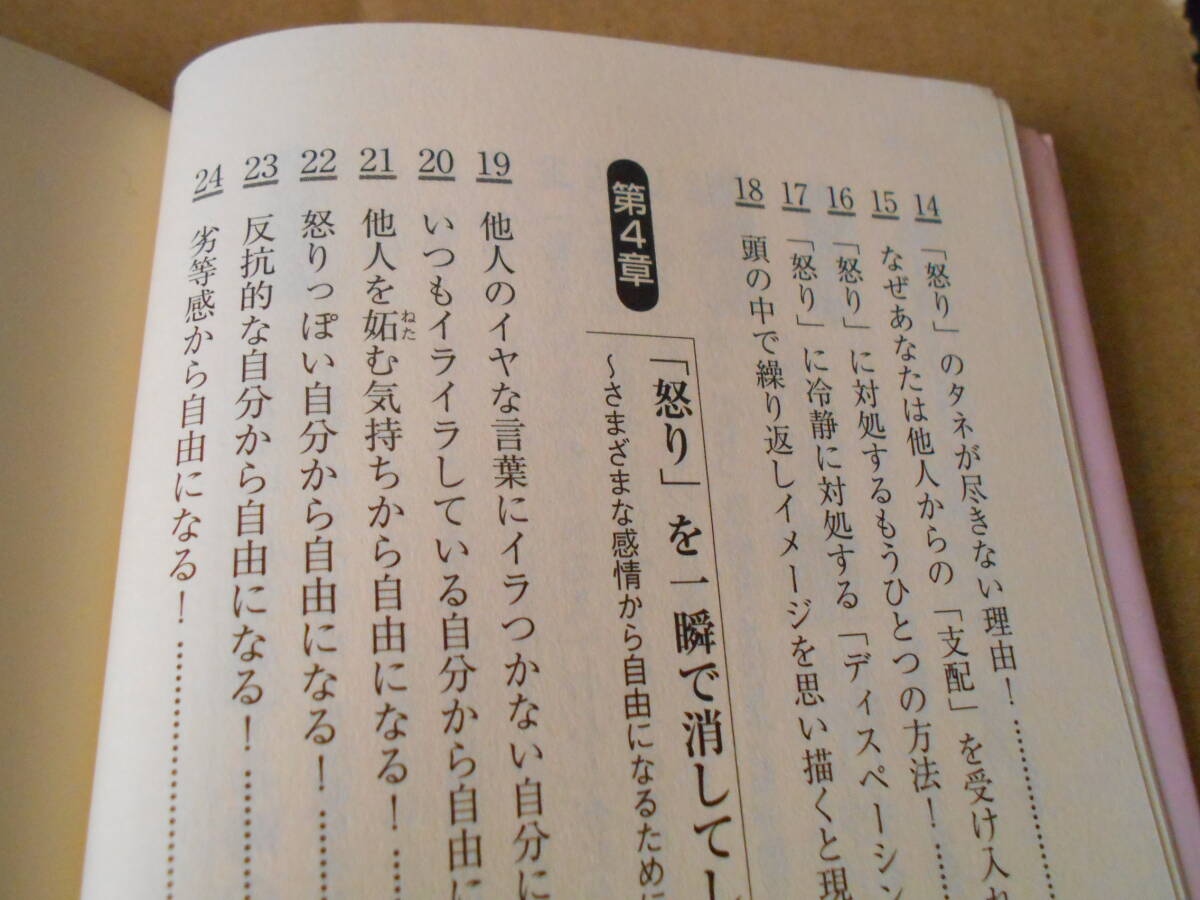 14 「怒り」のタネが尽きない理由！…………
15 なぜあなたは他人からの「支配」を受け入れ
16 「怒り」に対処するもうひとつの方法！……
17 「怒り」に冷静に対処する「ディスペーション
18 頭の中で繰り返しイメージを思い描くと現
第4章
「怒り」を一瞬で消して
～さまざまな感情から自由になるために
19 他人のイヤな言葉にイラつかない自分に
20 いつもイライラしている自分から自由に
21 他人を妬む気持ちから自由になる！……
ねた
22 怒りっぽい自分から自由になる！………
23 反抗的な自分から自由になる！…………
24 劣等感から自由になる！…………………